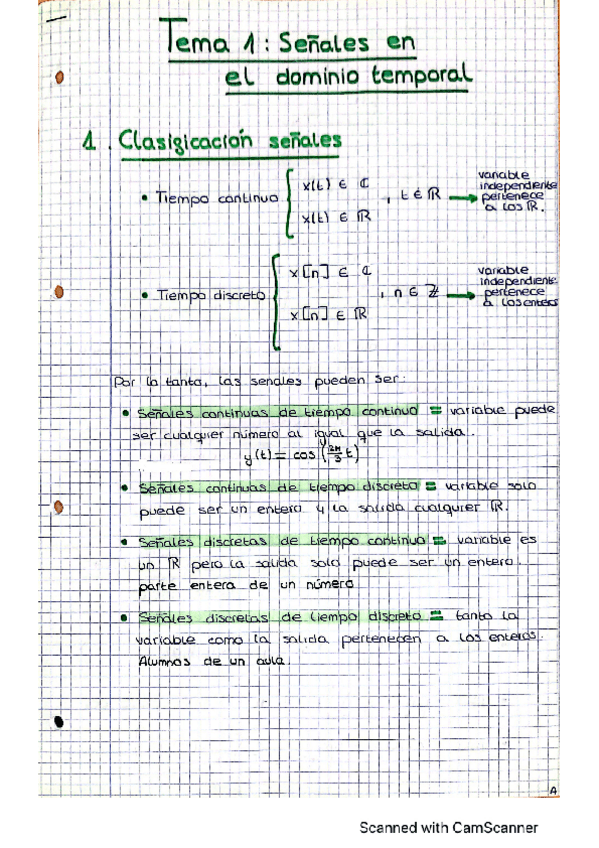 Tema 1: Señales en
el dominio temporal
1. Clasigicación señales
• Tiempo continuo { x(t) ∈ ℂ
x(t) ∈ ℝ
, t ∈ ℝ → variable
independiente
pertenece
a los ℝ.
• Tiempo discreto { x[n] ∈ ℂ
x[n] ∈ ℝ
, n ∈ ℤ → variable
independiente
pertenece
a los enteros
Por lo tanto, las senales pueden ser:
• Señales continuas de tiempo continuo = variable puede
ser cualquier número al igual que la salida.
y(t) = cos (2π/3 t)
• Señales continuas de tiempo discreto = variable solo
puede ser un entero y la salida cualquier ℝ.
• Señales discretas de tiempo continuo = variable es
un ℝ pero la salida solo puede ser un entero.
parte entera de un número
• Señales discretas de tiempo discreto = tanto la
variable como la salida pertenecen a los enteros.
Alumnos de un aula.
A
Scanned with CamScanner